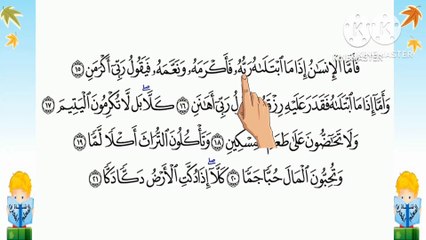 فَأَمَّا ٱلْإِنسَٰنُ إِذَا مَا ٱبْتَلَىٰهُ رَبُّهُۥ فَأَكْرَمَهُۥ وَنَعَّمَهُۥ فَيَقُولُ رَبِّىٓ أَكْرَمَنِ ١٥
وَأَمَّآ إِذَا مَا ٱبْتَلَىٰهُ فَقَدَرَ عَلَيْهِ رِزْقَ رَبِّىٓ أَهَٰنَنِ ١٦ كَلَّا ۖ بَل لَّا تُكْرِمُونَ ٱلْيَتِيمَ ١٧
وَلَا تَحَٰٓضُّونَ عَلَىٰ طَعَامِ ٱلْمِسْكِينِ ١٨ وَتَأْكُلُونَ ٱلتُّرَاثَ أَكْلًا لَّمًّا ١٩
وَتُحِبُّونَ ٱلْمَالَ حُبًّا جَمًّا ٢٠ كَلَّآ ۖ إِذَا دُكَّتِ ٱلْأَرْضُ دَكًّا دَكًّا ٢١